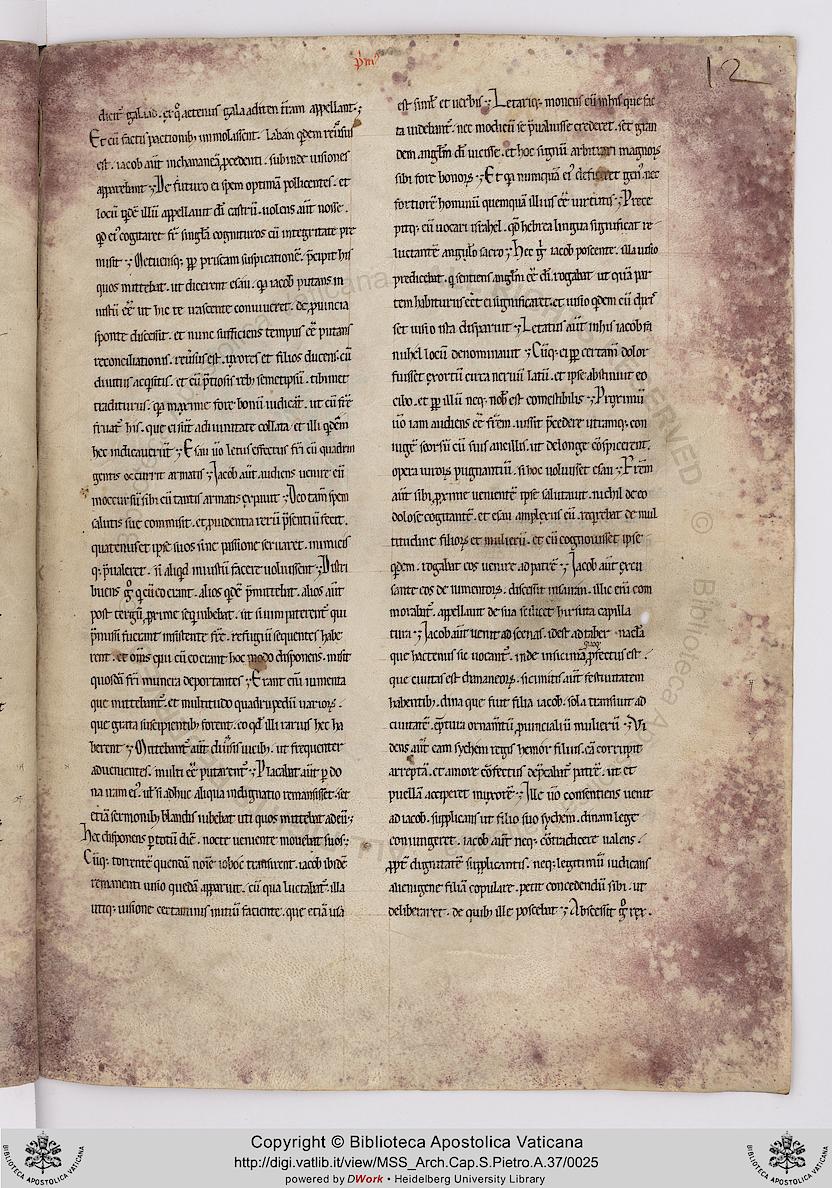 p̄m᷒
12
dicit᷒ galaad. et q᷒ actenus galaaditen t̄ram appellant᷒.;
Et cū factis pactionib; immolassent. Laban qdem reūsus
est. iacob aūt in chananeā, p̱cedenti. subinde uisiones
apparebant ;De futuro ei spem optimā pollicentes. et
locū qdē illū appellauit dī castrū. uolens aūt nosse.
qd ei᷒ cogitaret fr̄. singla cognituros cū integritate pre
misit ; Metuensq; ꝓp priscam suspicationē. p̄cipit his
quos mittebat. ut dicerent esau. qa iacob putans in
iustū eē ut hic re uascente conuiueret. de ꝓuincia
sponte discessit. et nunc sufficiens tempus eē putans
reconciliationis. reūsus est. uxores et filios ducens. cū
diuitiis acqsitis. et cū p̄tiosis reb; semetipsū. tibimet
traditurus. qa maxime fore bonū iudicat. ut cū fr̄e
fruat᷒ his. que ei sūt a diuinitate collata. et illi qdēm
hec indicauerūt ; Esau ūo letus effectus fr̄i cū quadrin
gentis occurrit armatis ; Iacob aūt. audiens uenire eū
in occursū sibi cū tantis armatis expauit ; Deo tam̄ spem
salutis sue commisit. et ꝓuidentia rerū p̄sentiū fecit.
quatenus et ipse suos sine passione seruaret. inimicis
q; p̄ualeret. si aliqd iniustū facere uoluissent ; Distri
buens g᷒ q cū eo erant. alios qdē p̄mittebat. alios aūt
post tergū, proxime seq iubebat. ut si uim paterent᷒ qui
p̄missi fuerant insistente fr̄e. refugiū sequentes habe
rent. et om̄s qui cū eo erant hoc modo disponens. misit
quosdā fr̄i munera deportantes ; Erant eñi iumenta
que mittebant᷒. et multitudo quadrupediū uarioꝝ.
que grata suscipientib; forent. eo qd illi rarius hec ha
berent ; Mittebant᷒ aūt diūsis uicib; ut frequenter
aduenientes. multi eē putarent᷒ ; Placabat aūt p do
na nam ei᷒. ut si adhuc aliqua indignatio remansisset. set
etiā sermonib; blandis iubebat uti quos mittebat ad eū ;
Hec disponens p totū diē. nocte ueniente mouebat suos ;
Cūq; torrentē quendā noīe iobec transirent. iacob ibidē
remanenti uisio quedā apparuit. cū qua luctabat᷒. illa
utiq; uisione certaminis initiū faciente. que etiā usa
est simt et uerbis ; Letariq; monens eū in his que fac
ta uidebant᷒. nec modicū se p̄ualuisse crederet. set gran
dem anglm dī uicisse. et hoc signū arbitrari magnoꝝ
sibi fore bonoꝝ ; Et qa numquā ei᷒ deficeret gen᷒. nec
fortiorē hominū quemquā illius eē uirtutis ; Prece
pitq; eū uocari israhel. qd hebrea lingua significat re
luctantē angelo sacro ; Hec g᷒ iacob poscente. illa uisio
predicebat. q sentiens anglm eē dī. rogabat ut quā par
tem habiturus eēt ei significaret. et uisio qdem cū dixis
set uisio ista disparuit ; Letatus aūt in his iacob fa
nuhel locū denominauit ; Cūq; ei ꝓp certam̄ dolor
fuisset exortū circa neruū latū. et ipse abstinuit eo
cibo. et ꝓp illū neq; nob̄ est comestibilis ; Proximū
ūo iam audiens eē fr̄em. iussit p̄cedere utramq; con
iugē seorsū cū suis ancillis. ut de longe cōspicerent.
opera uiroꝝ pugnantiū. si hoc uoluisset esau ; Fr̄em
aūt sibi, proxime uenientē ipse salutauit. nichil de eo
dolose cogitantē. et esau amplexus eū. reqrebat de mul
titudine filioꝝ et mulierū. et cū cognouisset ipse
qdem. rogabat eos uenire ad patrē ; Iacob aūt excu
sante eos de iumentoꝝ. discessit in sairan. illic eñi com
morabat᷒. appellauit de sua scilicet hirsuta capilla
tura ; Iacob aūt uenit ad scenas. idest ad tabernacla
que hactenus sic uocant᷒. inde in sicima quoq; ꝓfectus est.
que ciuitas est chananeoꝝ. sicimitis aūt festiuitatem
habentib; dina que fuit filia iacob. sola transiuit ad
ciuitatē. ēptura ornamtū ꝓuincialiū mulierū ; Vi
dens aūt eam sychem regis hemor filius. eā corrupit
arreptā. et amore cōfectus dep̄cabat᷒ patrē. ut et
puellā acciperet in uxorē ; Ille ūo consentiens uenit
ad iacob. supplicans ut filio suo sychem. dinam lege
coniungeret. iacob aūt neq; cōtradicere ualens.
ꝓpt dignitatē supplicantis. neq; legitimū iudicans
alienigene filiā copulare. petit concedendū sibi. ut
deliberaret. de quib; ille poscebat ; Abscessit g᷒ rex.
Copyright © Biblioteca Apostolica Vaticana
http://digi.vatlib.it/view/MSS_Arch.Cap.S.Pietro.A.37/0025
powered by DWork • Heidelberg University Library